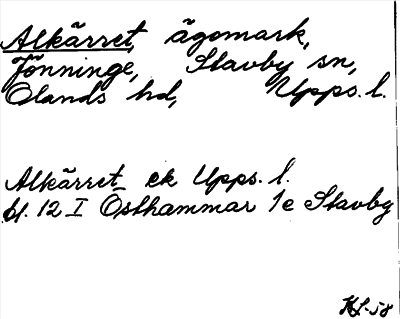 Alkärret, ägomark,
Jönninge, Stavby sn,
Olands hd, Upps. l.
Alkärret ek Upps. l.
bl. 12 I Östhammar 1e Stavby
HL-58